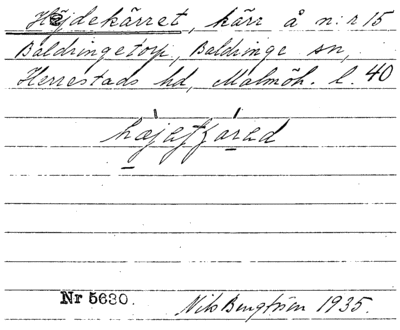 Höjdekärret, kärr å n:r 15
Baldringetorp, Baldringe sn,
Herrestads hd, Malmöh. l. 40
Nr 5630.
Nils Bengtsson 1935.